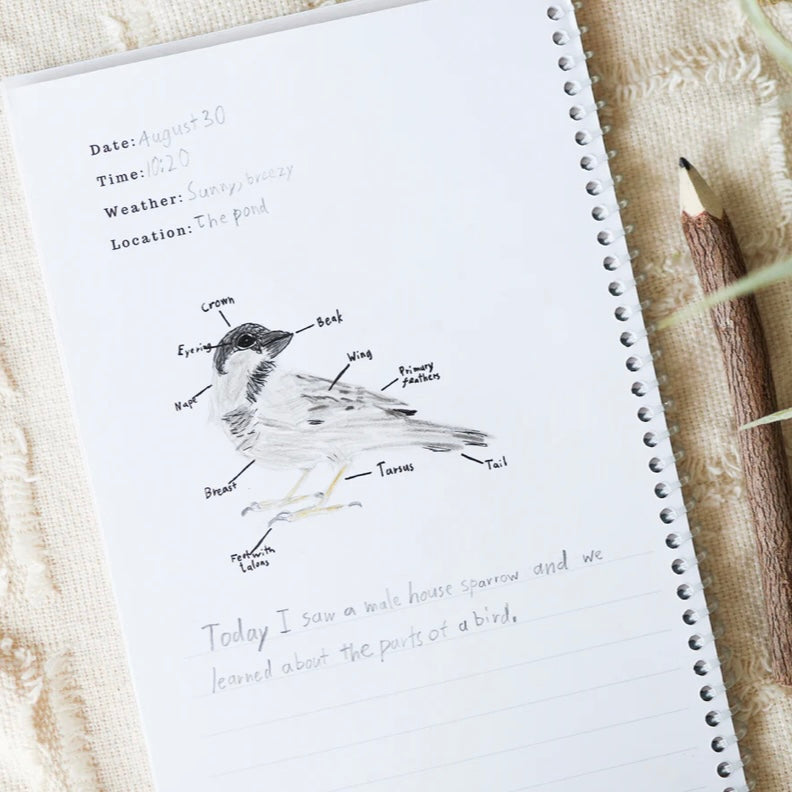 Date: August 30
Time: 10:20
Weather: Sunny, breezy
Location: The pond
Crown
Beak
Eyering
Wing
Primary
feathers
Nape
Tail
Tarsus
Breast
Feet with
talons
Today I saw a male house sparrow and we
learned about the parts of a bird.